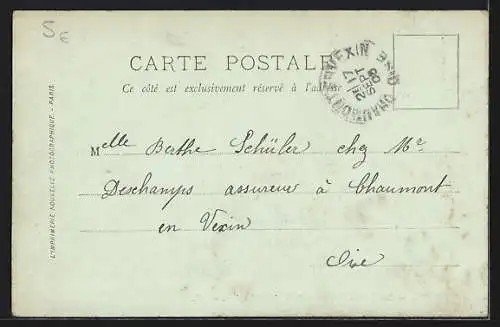 CARTE POSTALE
Ce côté est exclusivement réservé à l'adresse
CHAUMONT-EN-VEXIN OISE
17
SEPT
09
Melle Berthe Schüler chez Mr.
Deschamps assureur à Chaumont
en Vexin
Oise
L'IMPRIMERIE NOUVELLE PHOTOGRAPHIQUE. - PARIS.